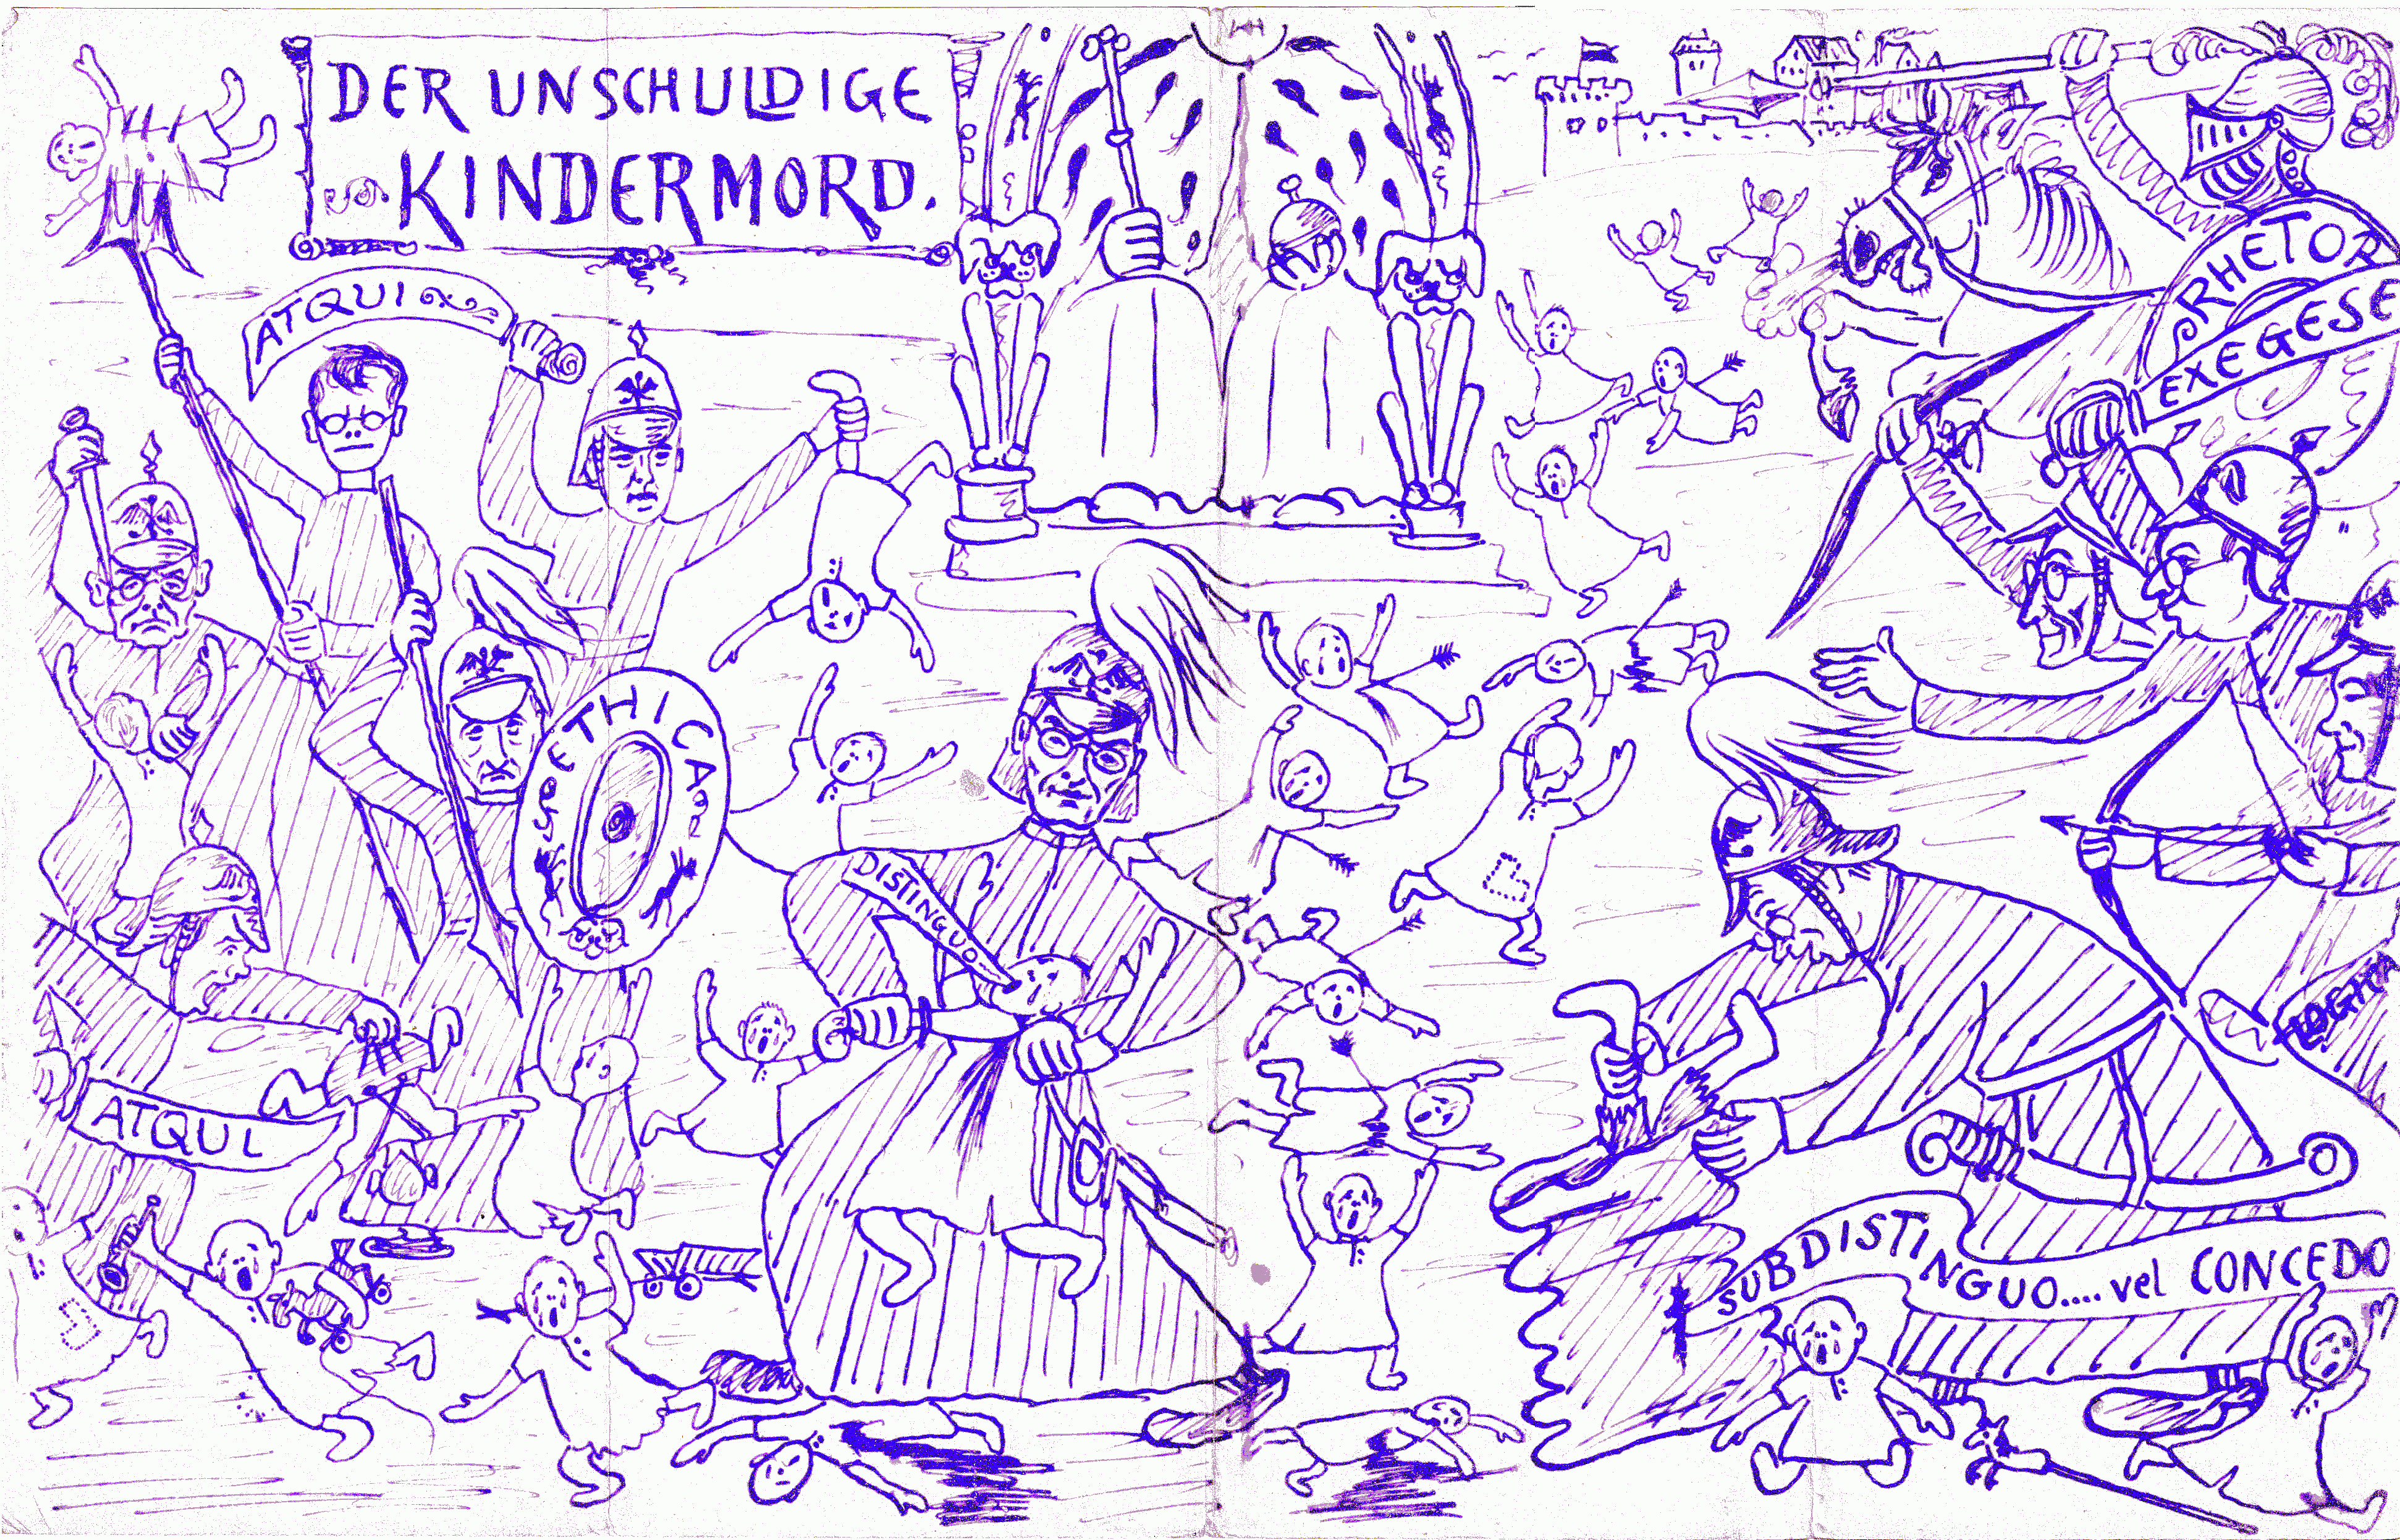 DER UNSCHULDIGE
KINDERMORD.
ATQUI
RHETOR
EXEGESE
ETHICA
DISTINGUO....
ATQUI
SUBDISTINGUO.... vel CONCEDO